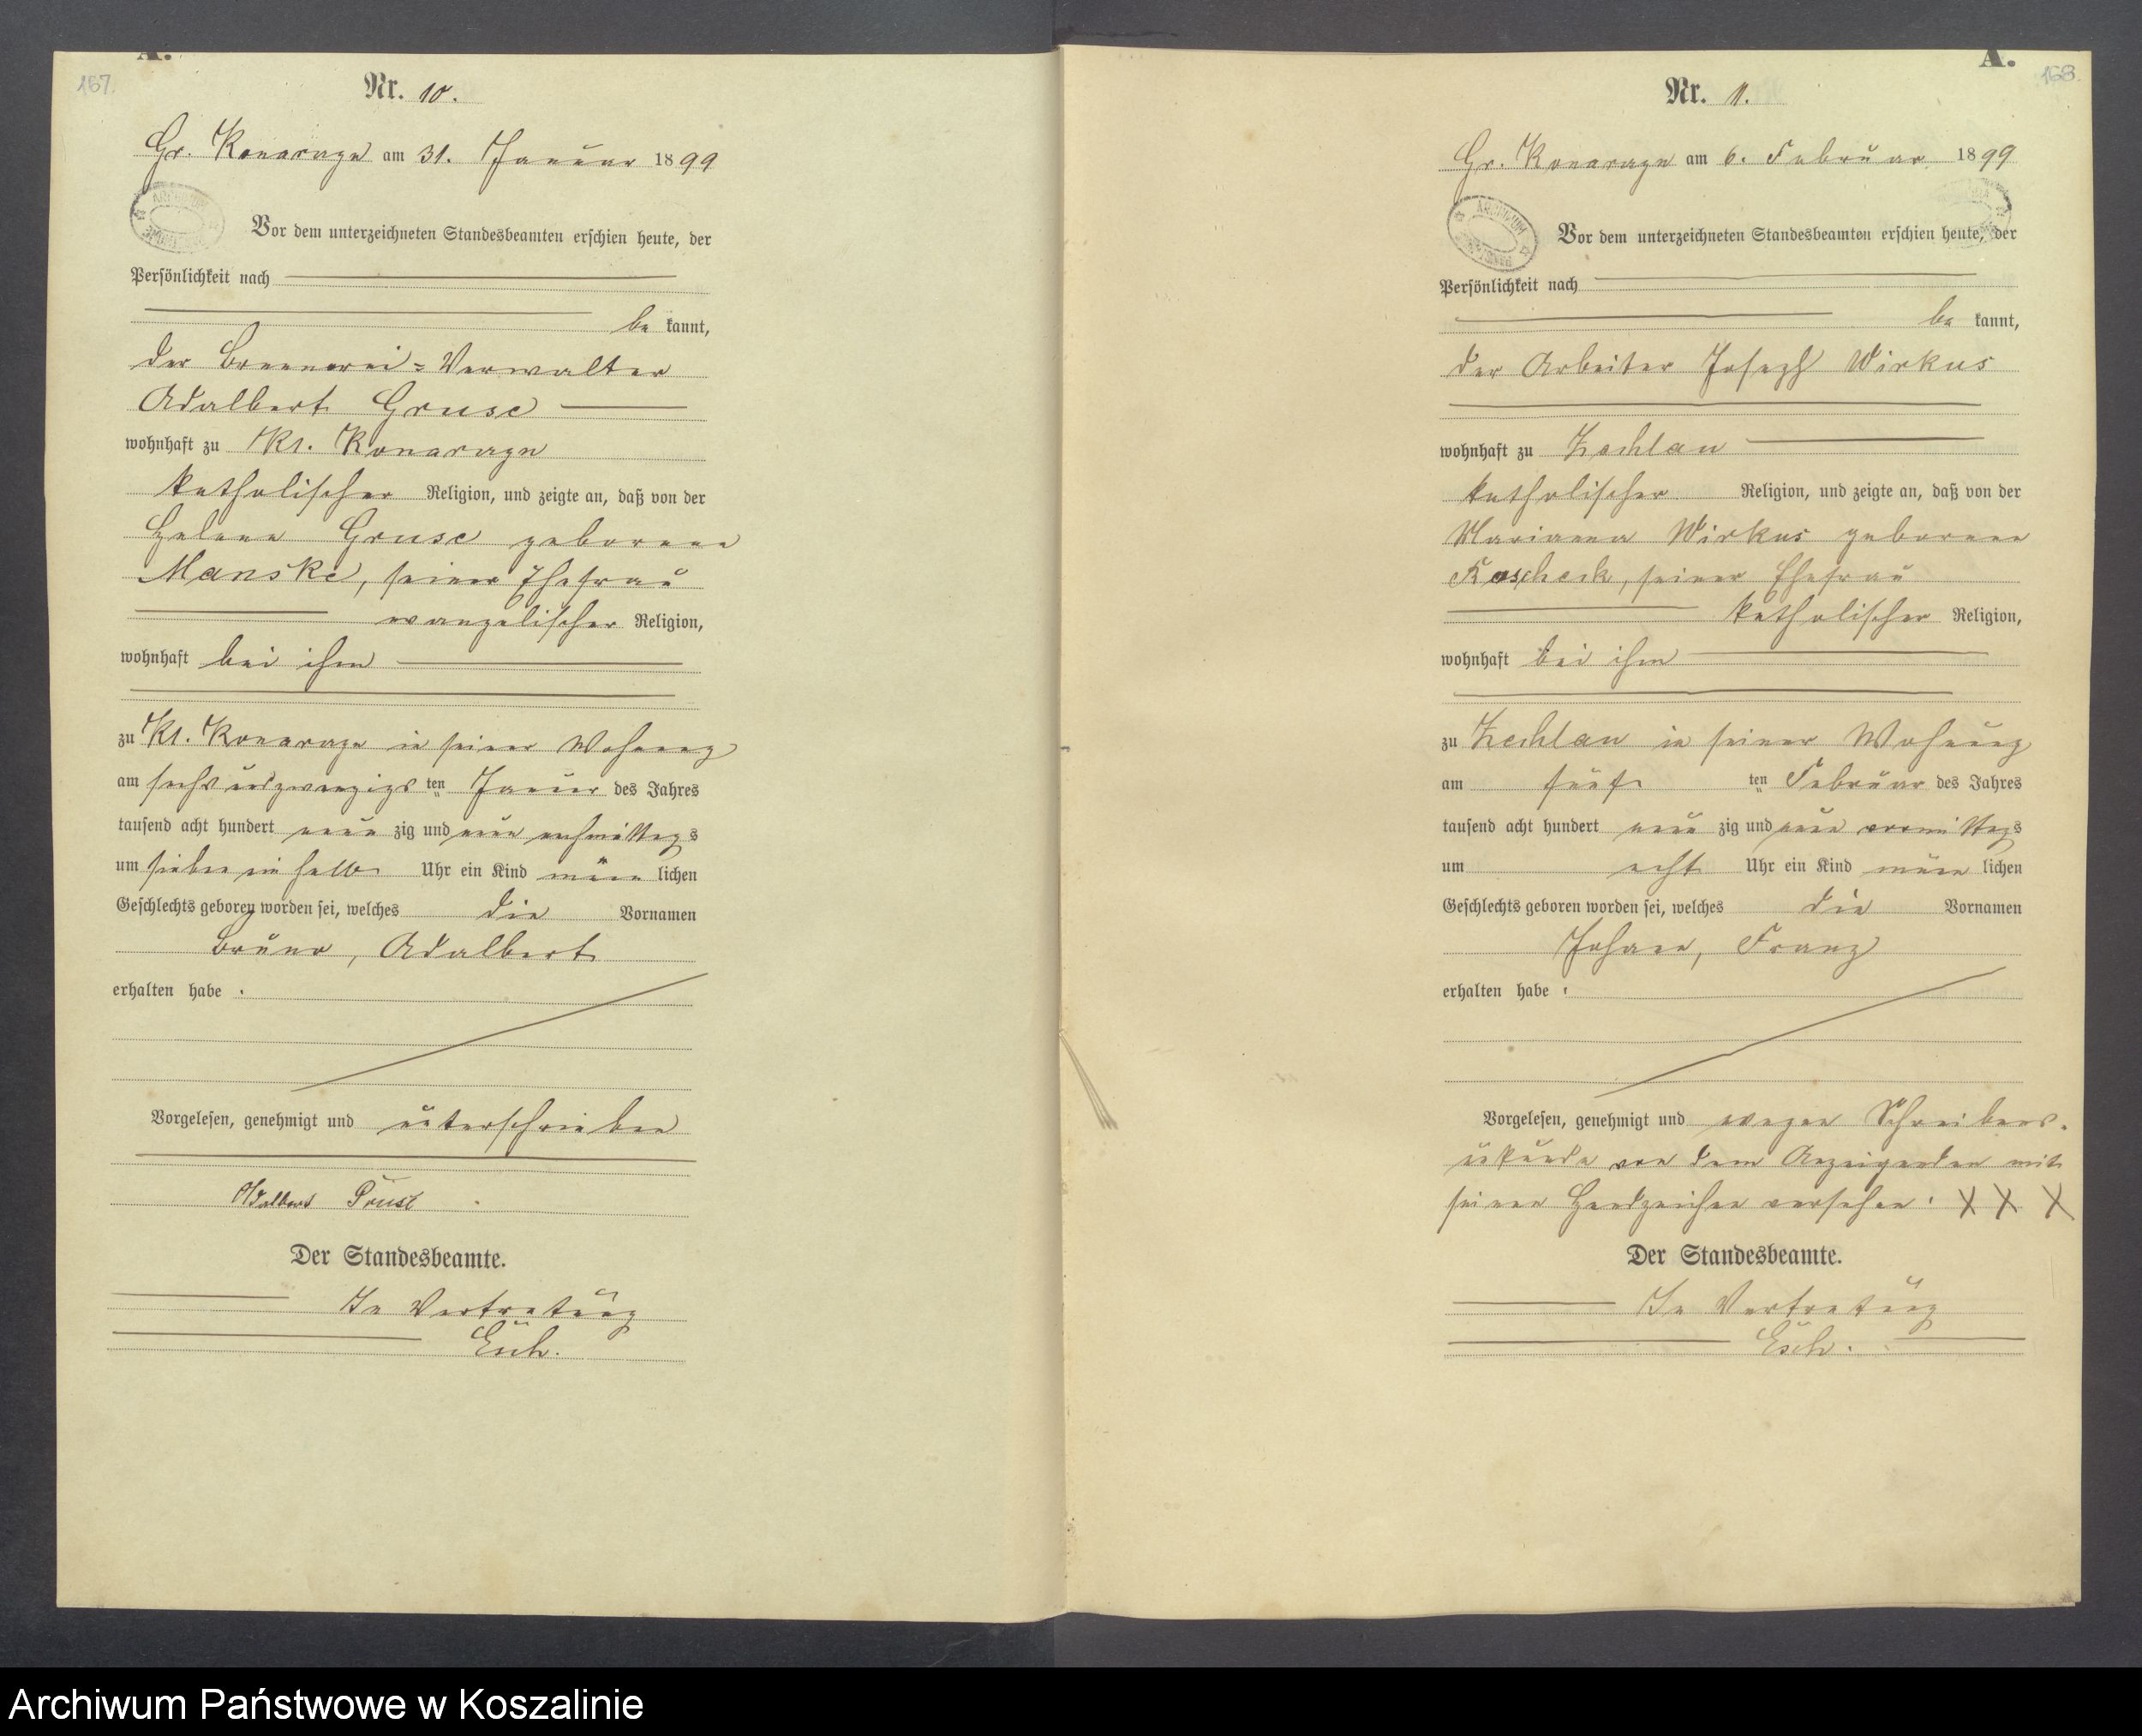 167.
A.
Nr. 10.
Gr. Konarzyn am 31. Januar 1899
ARCHIWUM
Vor dem unterzeichneten Standesbeamten erschien heute, der
Persönlichkeit nach
be kannt,
der Brennerei-Verwalter
Adalbert Gruse
wohnhaft zu Kl. Konarzyn
katholischer Religion, und zeigte an, daß von der
Helene Gruse geborenen
Manske, seiner Ehefrau
evangelischer Religion,
wohnhaft bei ihm
zu Kl. Konarzyn in seiner Wohnung
am sechs und zwanzigs ten Januar des Jahres
tausend acht hundert neun zig und neun nachmittags
um sieben ein halb Uhr ein Kind männ lichen
Geschlechts geboren worden sei, welches die Vornamen
Bruno, Adalbert
erhalten habe.
Vorgelesen, genehmigt und unterschrieben
Adalbert
Der Standesbeamte.
In Vertretung
Esch.
168.
A.
Nr. 11.
Gr. Konarzyn am 6. Februar 1899
ARCHIWUM
Vor dem unterzeichneten Standesbeamten erschien heute, der
Persönlichkeit nach
be kannt,
der Arbeiter Joseph Wirkus
wohnhaft zu Zechlau
katholischer Religion, und zeigte an, daß von der
Marianna Wirkus geborenen
Kascheck, seiner Ehefrau
katholischer Religion,
wohnhaft bei ihm
zu Zechlau in seiner Wohnung
am fünf ten Februar des Jahres
tausend acht hundert neun zig und neun vormittags
um acht Uhr ein Kind männ lichen
Geschlechts geboren worden sei, welches die Vornamen
Johann, Franz
erhalten habe.
Vorgelesen, genehmigt und wegen Schreibens-
unkunde von dem Anzeigenden mit
seinen Handzeichen versehen. X X X
Der Standesbeamte.
In Vertretung
Esch.
Archiwum Państwowe w Koszalinie